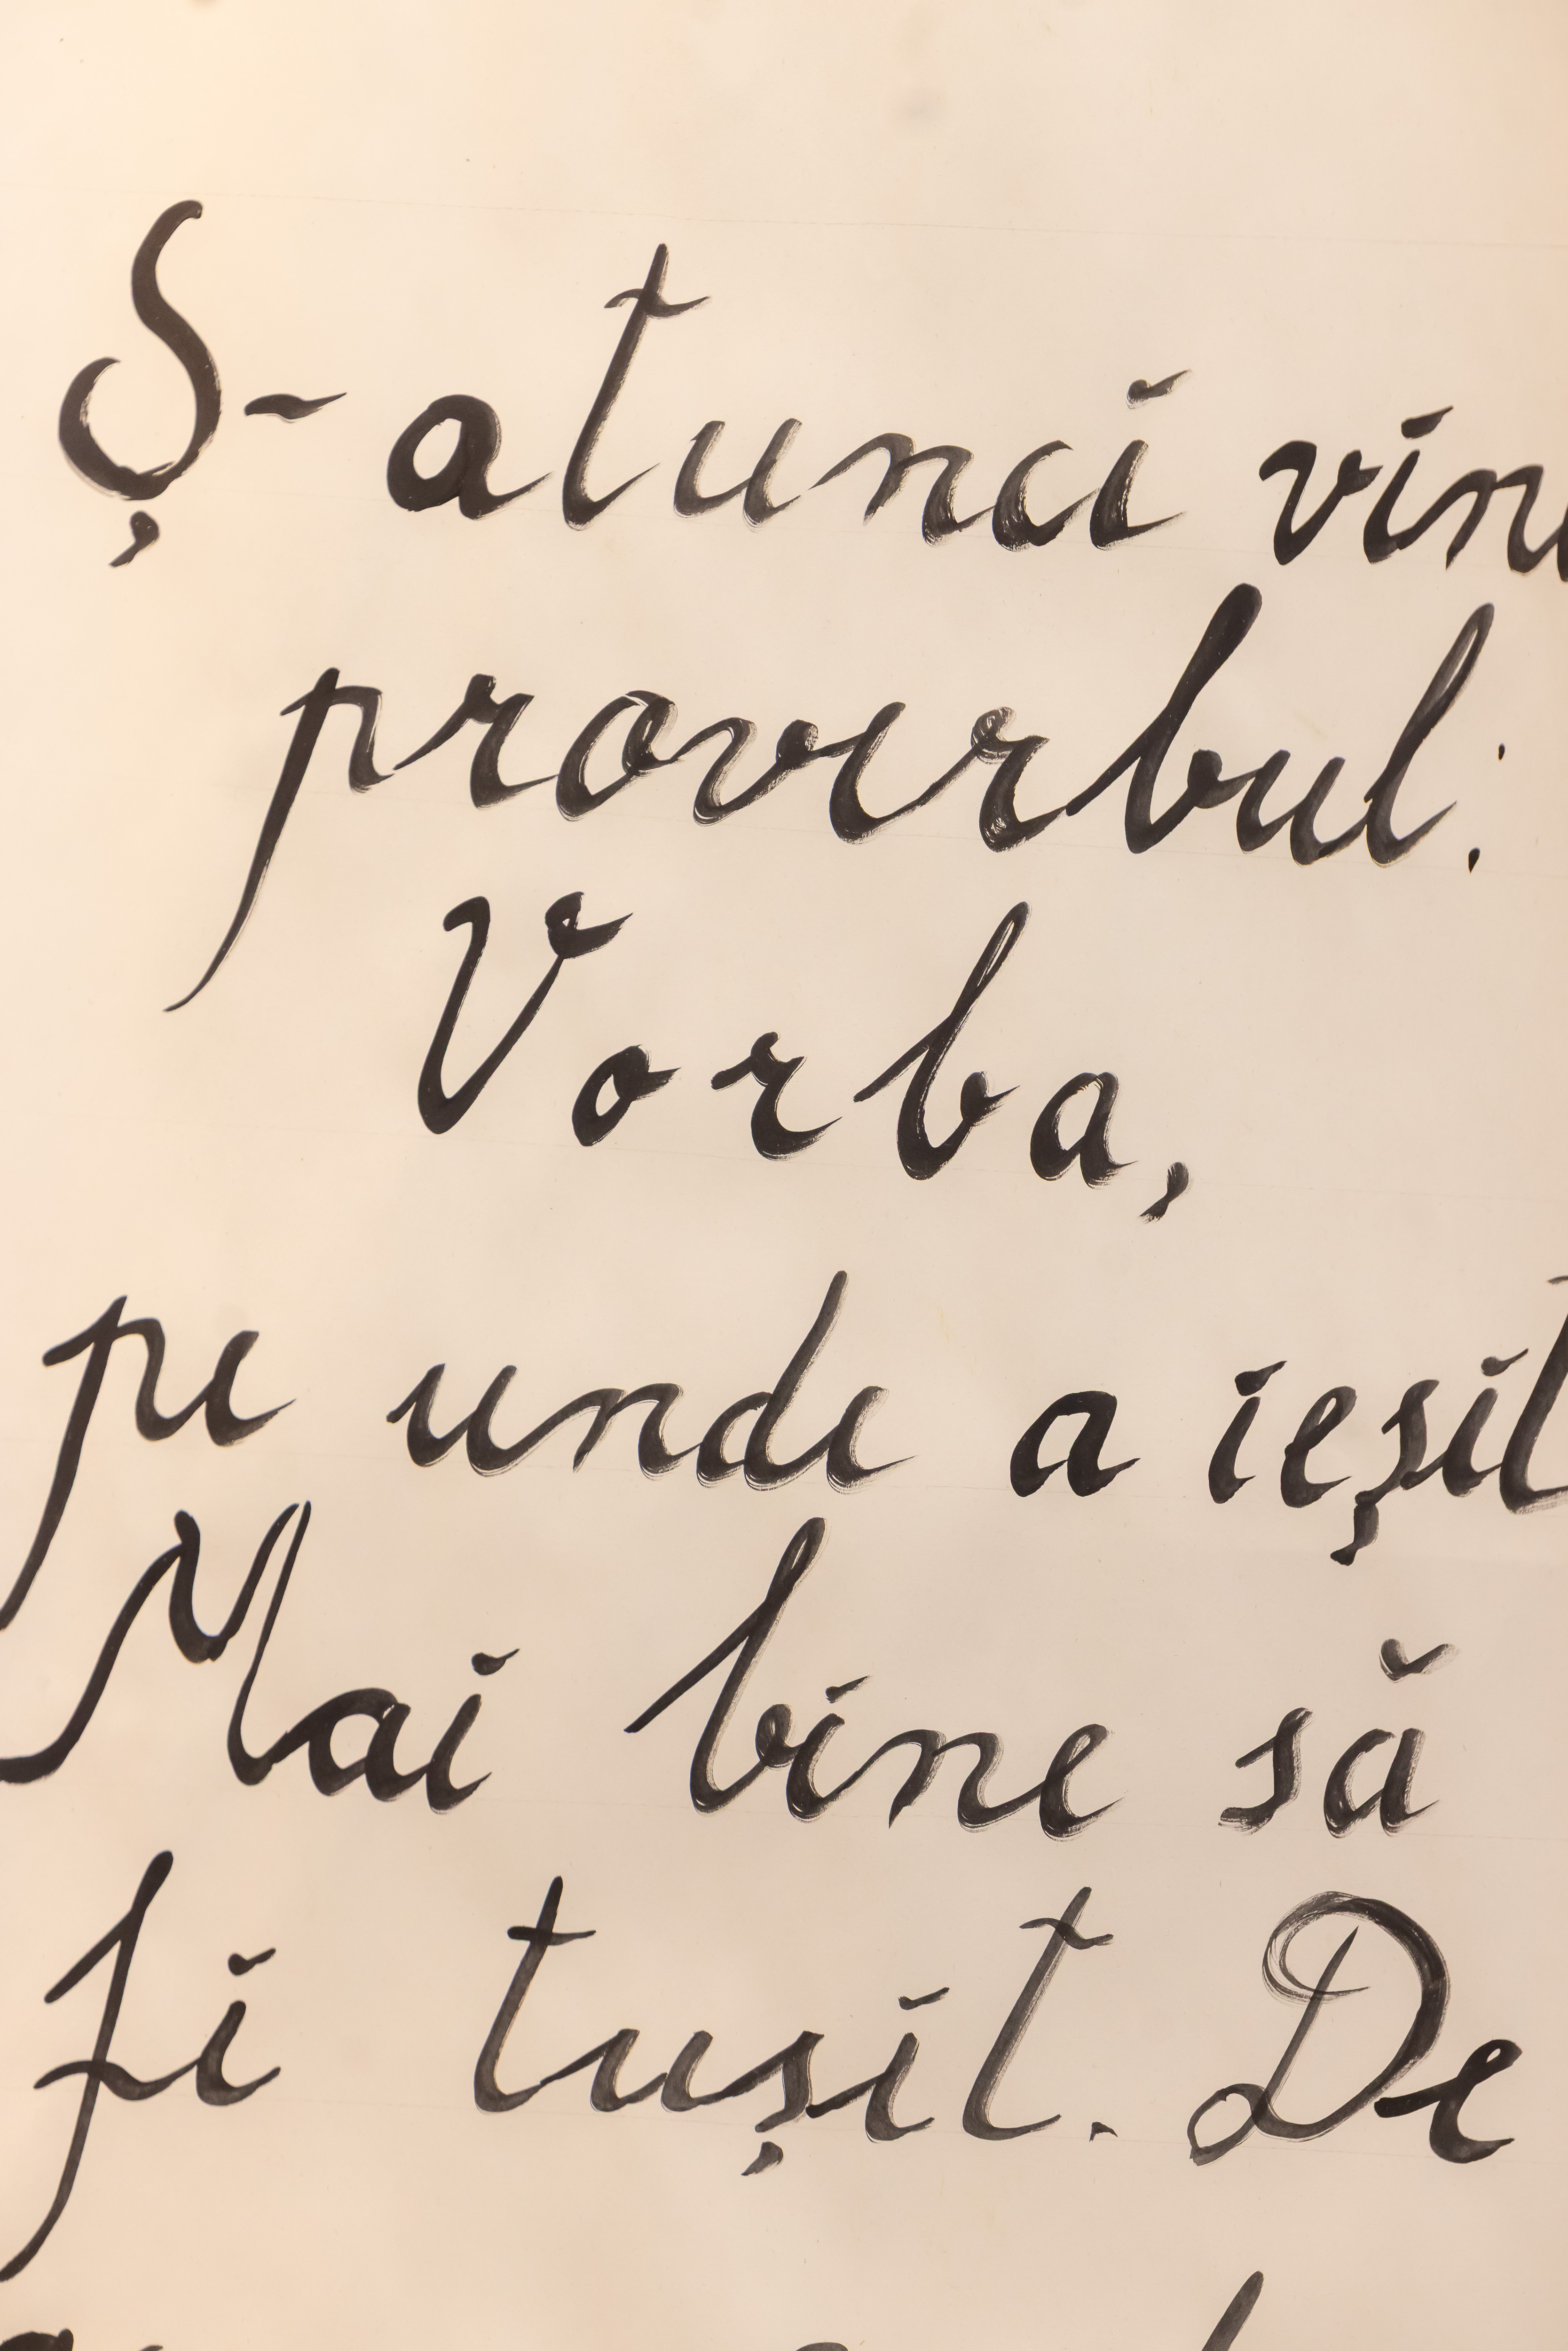 Ș-atunci vine
proverbul:
Vorba,
pe unde a ieșit
Mai bine să
fi tușit. De